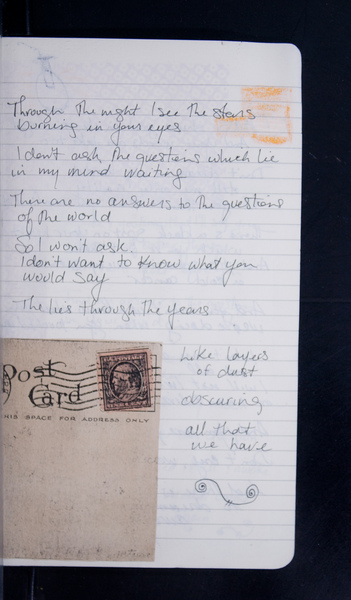 Through the night I see the stars
burning in your eyes
I don't ask the questions which lie
in my mind waiting
There are no answers to the questions
of the world
So I won't ask.
I don't want to know what you
would say
The lies through the years
Like layers
of dust
obscuring
all that
we have
Post
Card
THIS SPACE FOR ADDRESS ONLY